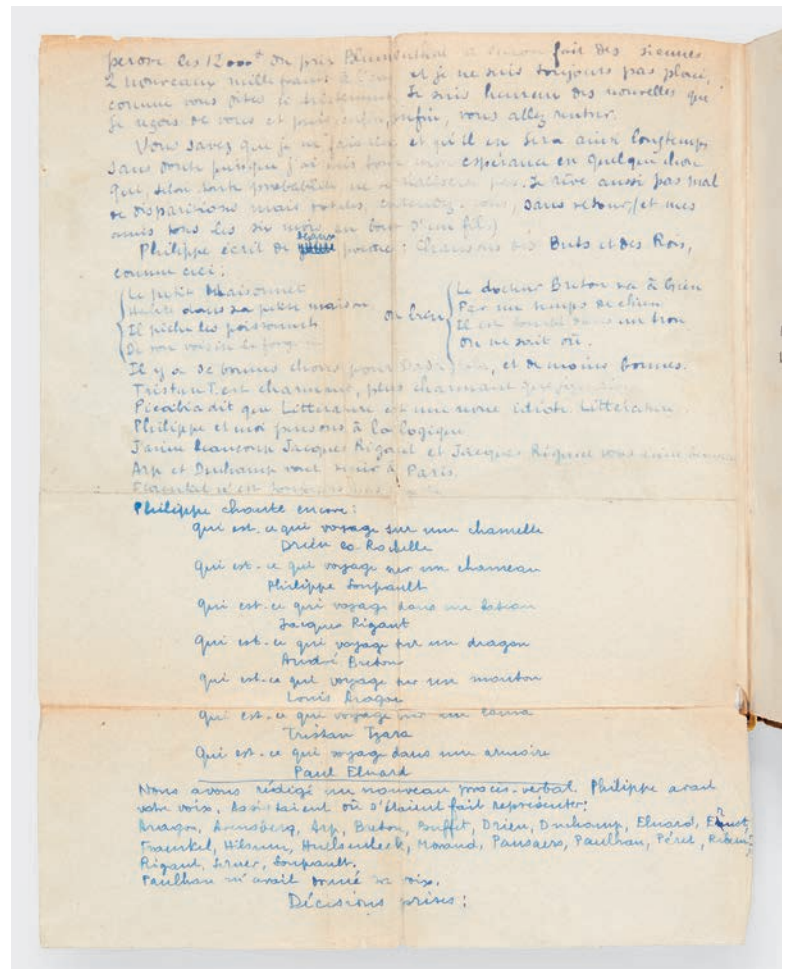 perdre les 12000 du prix Blumenthal a encore fait des siennes
2 nouveaux mille francs à et je ne suis toujours pas placé,
comme vous dites si tristement. Je suis heureux des nouvelles que
je reçois de vous et puis enfin, enfin, vous allez rentrer.
Vous savez que je ne fais rien et qu'il en sera ainsi longtemps
sans doute puisque j'ai mis toute mon espérance en quelque chose
qui, selon toute probabilité ne se réalisera pas. Je rêve aussi pas mal
de disparitions mais totales, entendez-vous, sans retour, (et mes
amis tous les six mois au bout d'un fil.)
Philippe écrit de poème : Chansons des Buts et des Rois,
comme ceci :
Le petit Maisonnet
Habite dans sa petite maison
Il pêche les poissonnets
De son voisin
ou bien
Le docteur Breton va à bien
Par un temps de chien
Il est tombé dans un trou
On ne sait où.
Il y a de bonnes choses pour et de moins bonnes.
Tristan T. est charmant, plus charmant que
Picabia dit que Littérature est une revue idiote. Littérature.
Philippe et moi pensons à la logique
J'aime beaucoup Jacques Rigaut et Jacques Rigaut vous aime
Arp et Duchamp vont venir à Paris.
Fraenkel n'est toujours
Philippe chante encore :
Qui est-ce qui voyage sur une chamelle
Drieu la Rochelle
Qui est-ce qui voyage sur un chameau
Philippe Soupault
Qui est-ce qui voyage dans un bateau
Jacques Rigaut
Qui est-ce qui voyage sur un dragon
André Breton
Qui est-ce qui voyage sur un mouton
Louis Aragon
Qui est-ce qui voyage sur un lama
Tristan Tzara
Qui est-ce qui voyage dans une armoire
Paul Eluard
Nous avons rédigé un nouveau procès-verbal. Philippe avait
votre voix. Assistaient où s'étaient fait représenter :
Aragon, Arensberg, Arp, Breton, Buffet, Drieu, Duchamp, Eluard,
Fraenkel, Hilsum, Huelsenbeck, Morand, Pansaers, Paulhan, Péret,
Rigaut, Serner, Soupault.
Paulhan m'avait donné sa voix.
Décisions prises :